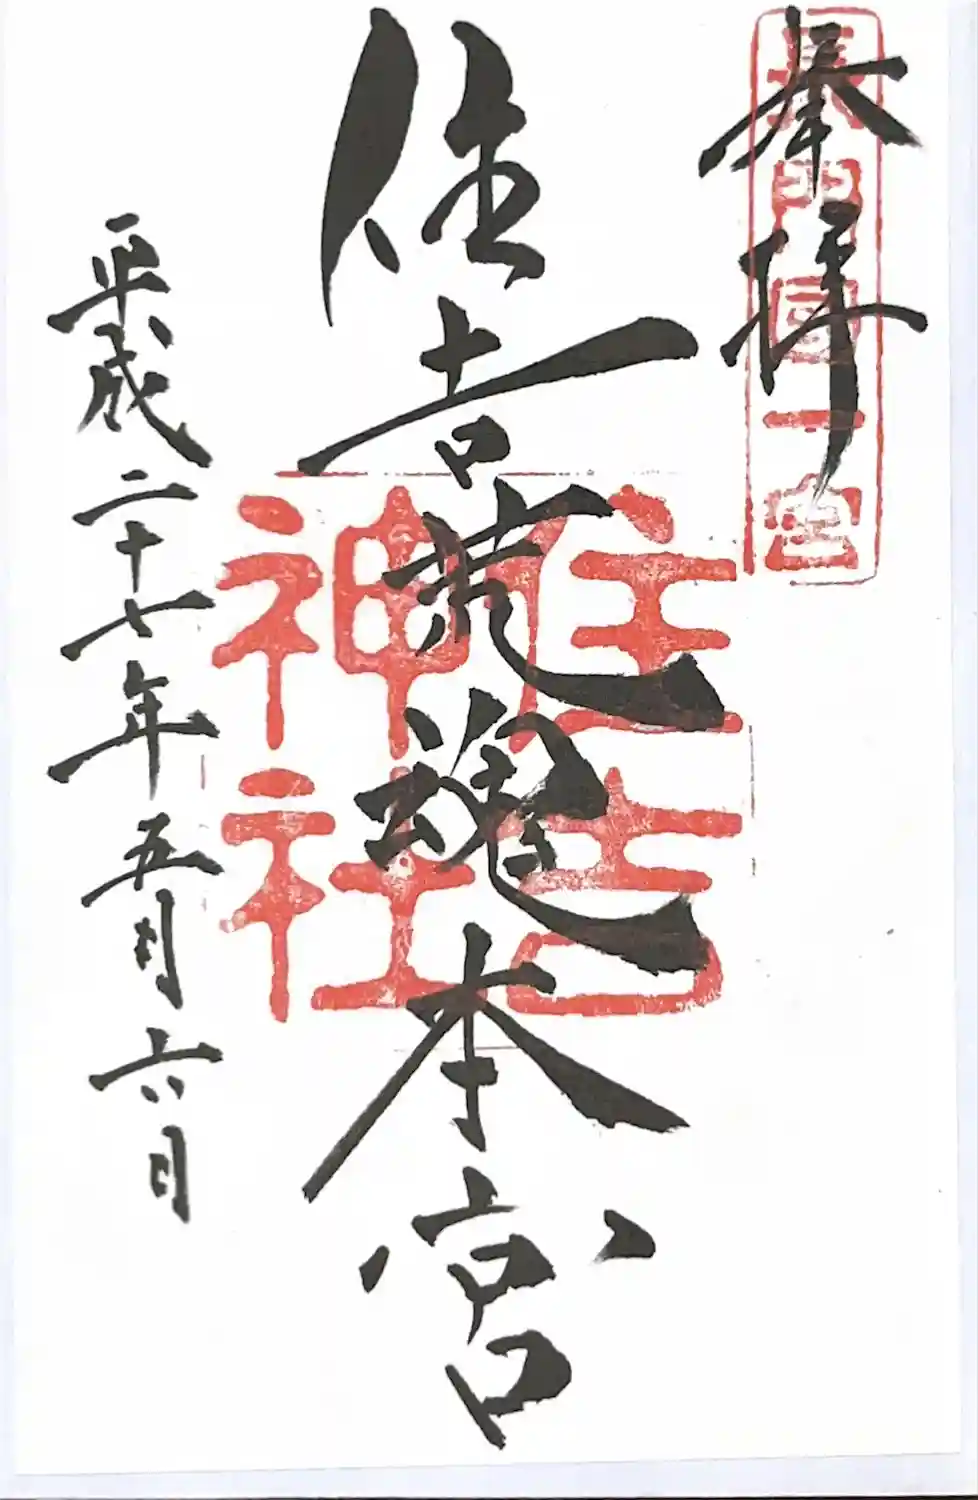 奉拝
長門国一宮
住吉荒魂本宮
住吉神社
平成二十七年五月六日